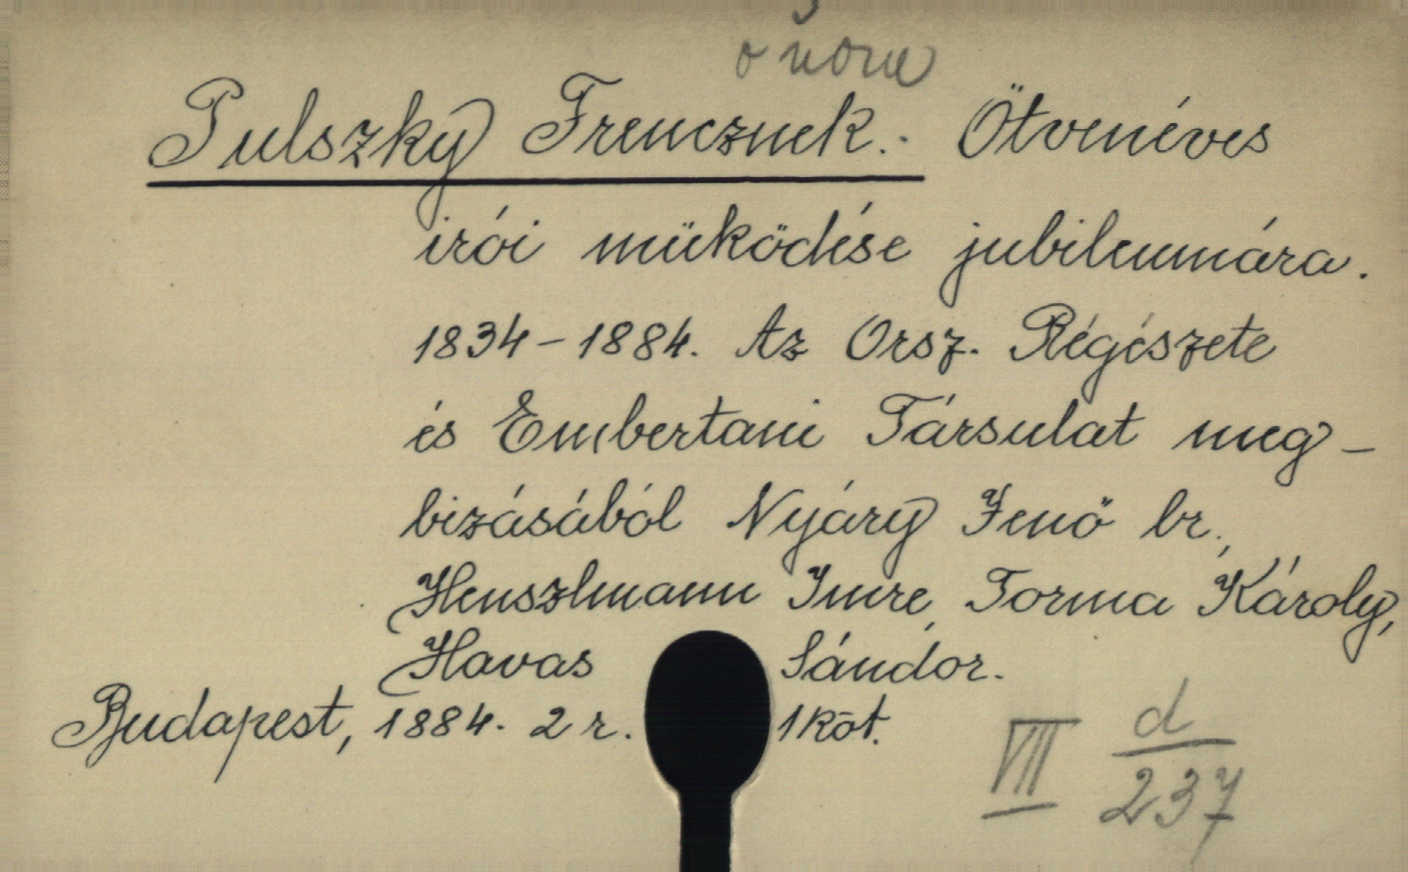 Pulszky Frencznek. Ötvenéves
irói müködése jubileumára.
1834-1884. Az Orsz. Régészete
és Embertani Társulat meg-
bizásából Nyáry Jenő br.,
Henszlmann Imre, Torma Károly,
Havas Sándor.
Budapest, 1884. 2 r. 1 köt.
VII d
237